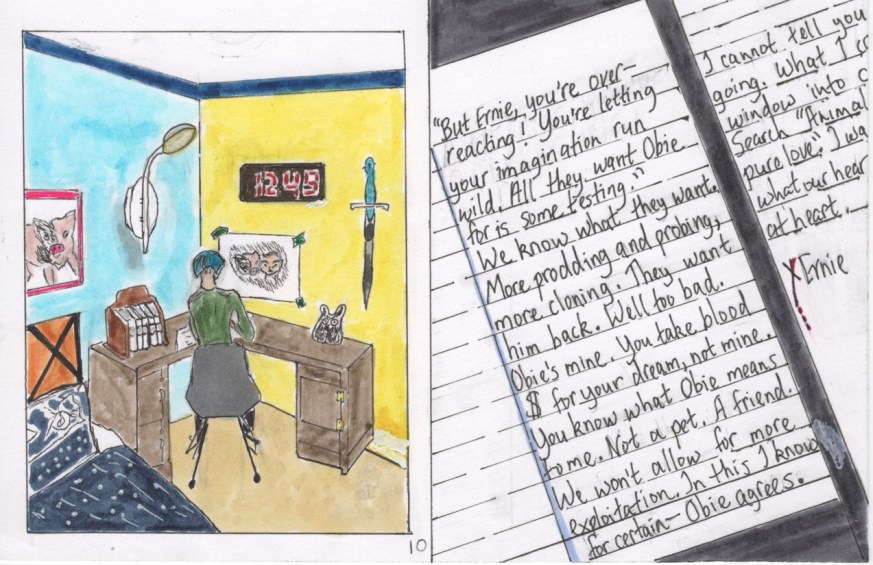 12 49
10
"But Ernie, you're over-
reacting! You're letting
your imagination run
wild. All they want Obie
for is some testing."
We know what they want.
More prodding and probing,
more cloning. They want
him back. Well too bad.
Obie's mine. You take blood
$ for your dream, not mine.
You know what Obie means
to me. Not a pet. A friend.
We won't allow for more
exploitation. In this I know
for certain- Obie agrees.
I cannot tell you
going. What I c
window into c
Search "Animal
pure love". I wa
what our hear
at heart.
X Ernie